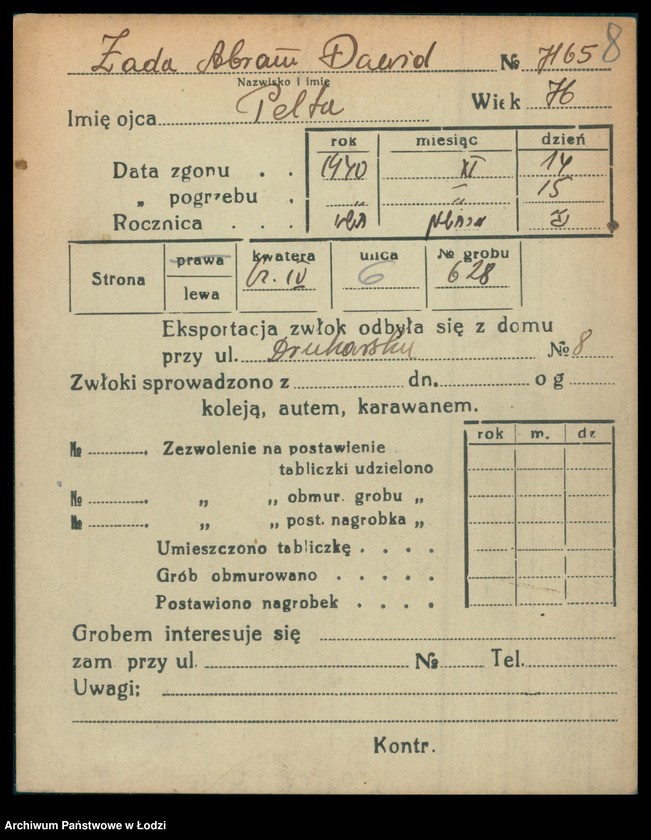 Zada Abram Dawid № 71658
Nazwisko i imię
Imię ojca Pelta Wiek 76
rok miesiąc dzień
Data zgonu . . 1940 XI 14
„ pogrzebu . „ „ 15
Rocznica . . .
Strona prawa lewa kwatera kr. IV ulica 6 № grobu 628
Eksportacja zwłok odbyła się z domu
przy ul. Drukarska № 8
Zwłoki sprowadzono z dn. o g
koleją, autem, karawanem.
rok m. dz
№ Zezwolenie na postawienie
tabliczki udzielono
№ „ „ obmur. grobu „
№ „ „ post. nagrobka „
Umieszczono tabliczkę . . . .
Grób obmurowano . . . . .
Postawiono nagrobek . . . .
Grobem interesuje się
zam przy ul. № Tel.
Uwagi:
Kontr.
Archiwum Państwowe w Łodzi